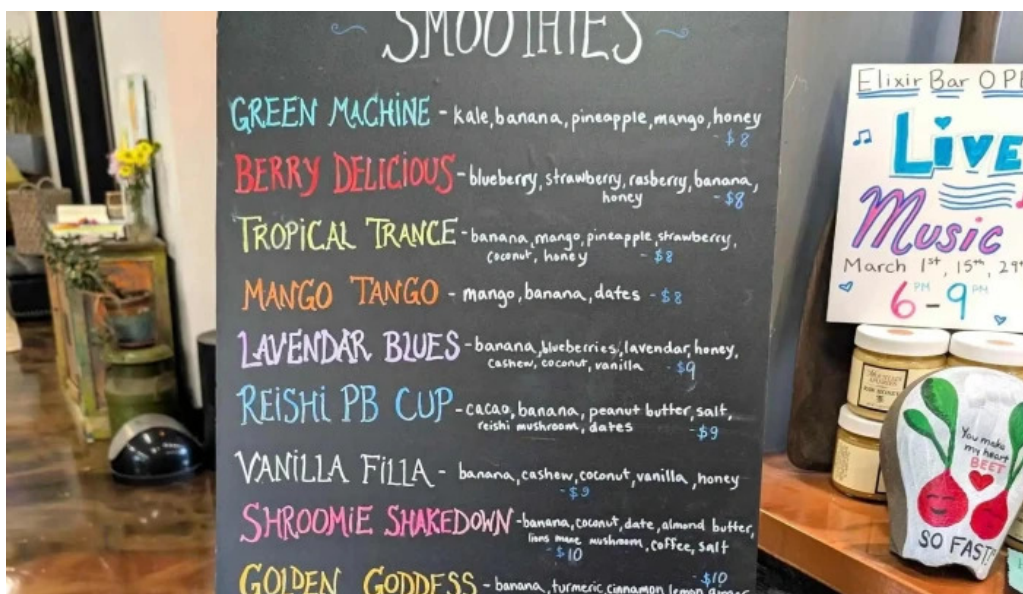 SMOOTHIES
GREEN MACHINE - kale, banana, pineapple, mango, honey
- $8
BERRY DELICIOUS - blueberry, strawberry, rasberry, banana,
honey - $8
TROPICAL TRANCE - banana, mango, pineapple, strawberry,
coconut, honey - $8
MANGO TANGO - mango, banana, dates - $8
LAVENDAR BLUES - banana, blueberries, lavendar, honey,
cashew, coconut, vanilla - $9
REISHI PB CUP - cacao, banana, peanut butter, salt,
reishi mushroom, dates - $9
VANILLA FILLA - banana, cashew, coconut, vanilla, honey
- $9
SHROOMIE SHAKEDOWN - banana, coconut, date, almond butter,
lions mane mushroom, coffee, salt
- $10
- $10
GOLDEN GODDESS - banana, turmeric, cinnamon, lemon, ginger
Elixir Bar OPE
LIVE
Music
March 1st, 15th, 29th
6 PM - 9 PM
You make
my heart
BEET
SO FAST!